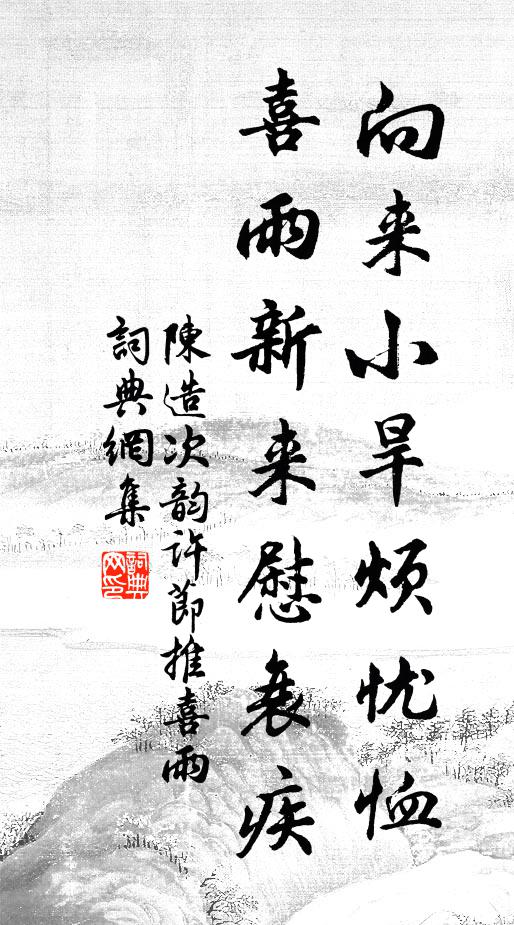 向来小旱烦忧恤
喜雨新来慰衰疾
陳造次韵许節推喜雨
詞典網集
詞典网印